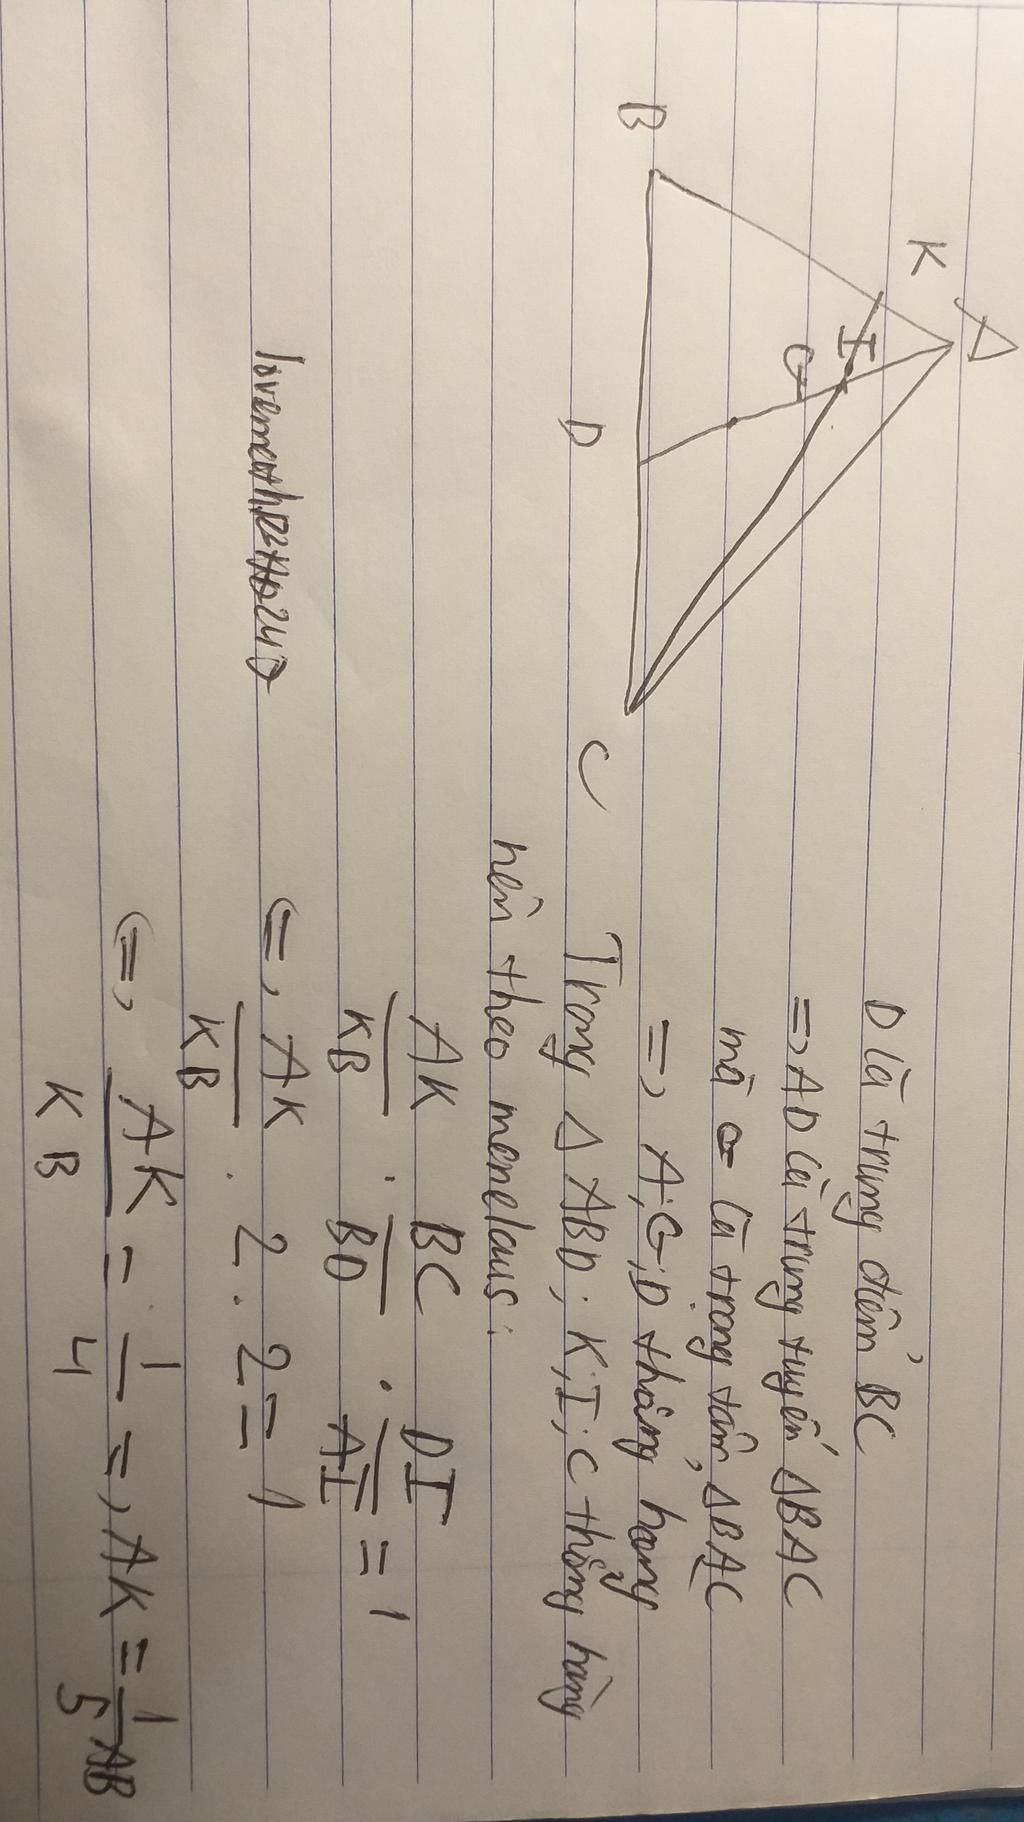 A
K
I
G
B
D
C
D là trung điểm BC
=> AD là trung tuyến ΔBAC
mà G là trọng tâm ΔBAC
=> A; G; D thẳng hàng
Trong ΔABD; K; I; C thẳng hàng
nên theo menelaus:
AK/KB . BC/BD . DI/AI = 1
<=> AK/KB . 2 . 2 = 1
<=> AK/KB = 1/4 => AK = 1/5 AB